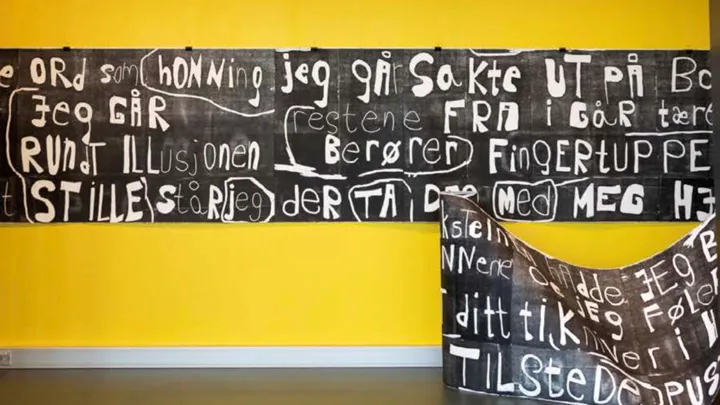 e ORD som hONNing jeg gåR SaKte UT på Bo
Jeg GÅR restene FRA i GåR tære
RUNdT ILLusjonen Berører FingERtUPPE
t STiLLE ståR jeg deR TA i Med MEG HJ
ksTein
NNene hadde JEG B
ditt tiK jEG FøLe
TiLSteDe